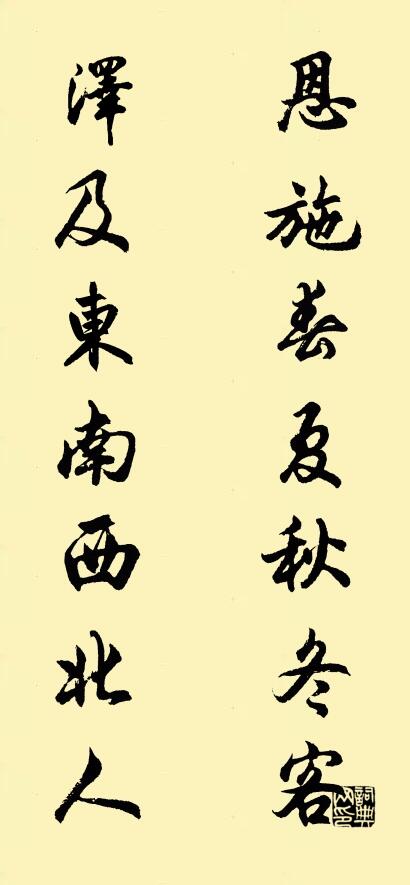 恩施春夏秋冬客
澤及東南西北人